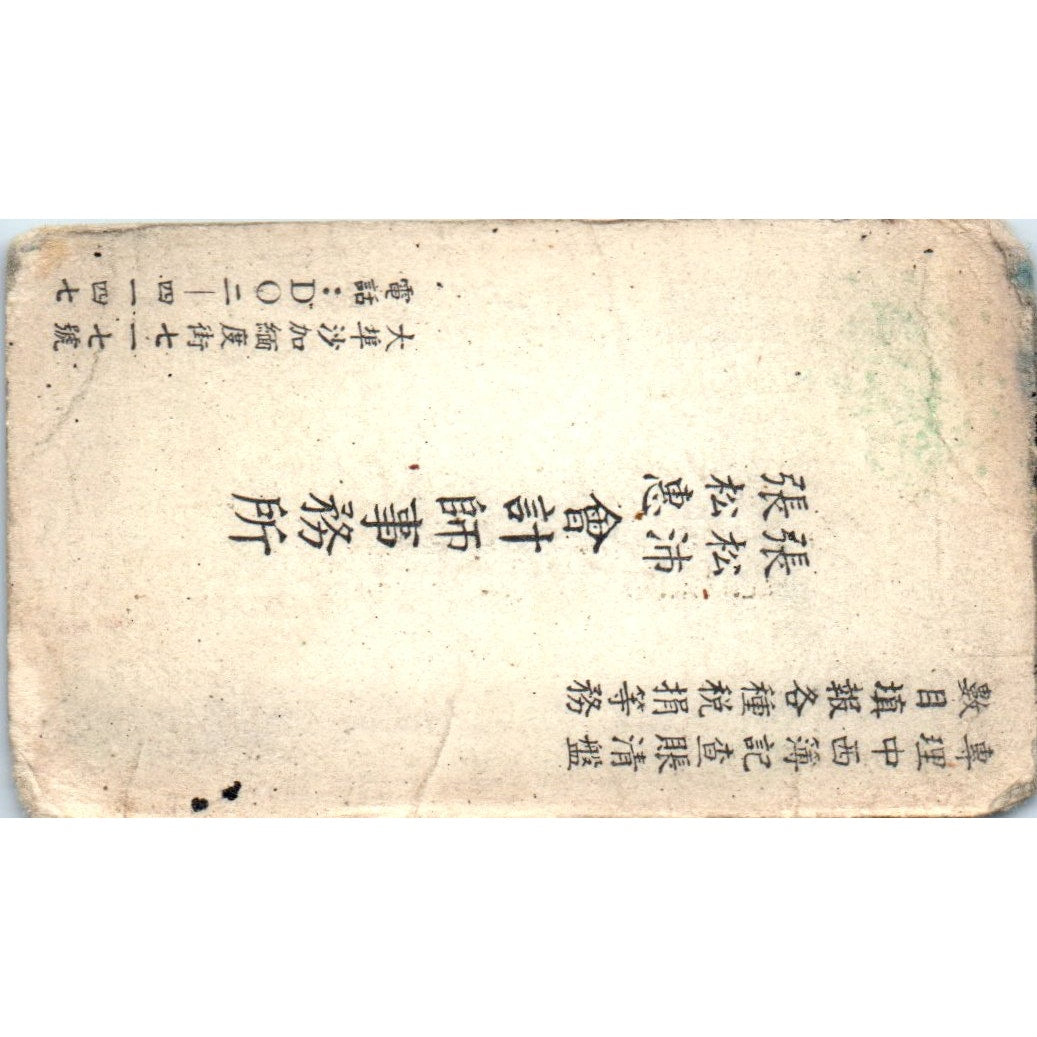 專理中西簿記查賬清盤
數目填報各種稅捐等務
張松沛
張松惠
會計師事務所
大埠沙加緬度街七一七號
電話:DO二—四一四七